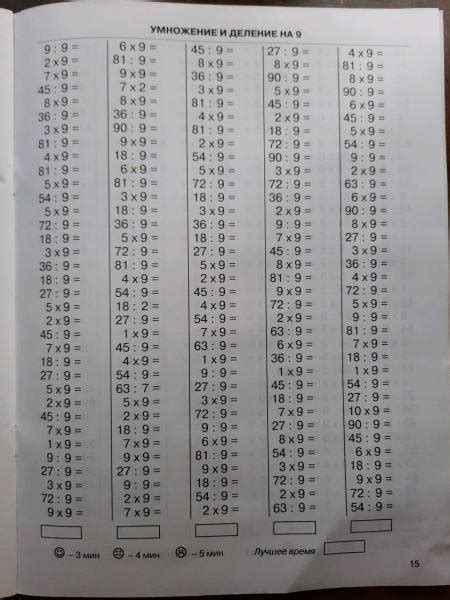 УМНОЖЕНИЕ И ДЕЛЕНИЕ НА 9
9 : 9 =
2 x 9 =
7 x 9 =
45 : 9 =
8 x 9 =
36 : 9 =
3 x 9 =
81 : 9 =
4 x 9 =
81 : 9 =
5 x 9 =
54 : 9 =
5 x 9 =
72 : 9 =
18 : 9 =
3 x 9 =
36 : 9 =
18 : 9 =
27 : 9 =
5 x 9 =
2 x 9 =
45 : 9 =
7 x 9 =
18 : 9 =
27 : 9 =
5 x 9 =
2 x 9 =
45 : 9 =
7 x 9 =
1 x 9 =
9 : 9 =
27 : 9 =
3 x 9 =
72 : 9 =
9 x 9 =
6 x 9 =
81 : 9 =
9 x 9 =
7 x 2 =
8 x 9 =
36 : 9 =
90 : 9 =
9 x 9 =
18 : 9 =
6 x 9 =
81 : 9 =
3 x 9 =
18 : 9 =
36 : 9 =
5 x 9 =
72 : 9 =
81 : 9 =
4 x 9 =
54 : 9 =
18 : 2 =
27 : 9 =
1 x 9 =
45 : 9 =
4 x 9 =
54 : 9 =
63 : 7 =
5 x 9 =
2 x 9 =
18 : 9 =
7 x 9 =
9 x 9 =
27 : 9 =
9 : 9 =
2 x 9 =
7 x 9 =
45 : 9 =
8 x 9 =
36 : 9 =
3 x 9 =
81 : 9 =
4 x 9 =
81 : 9 =
2 x 9 =
54 : 9 =
5 x 9 =
72 : 9 =
18 : 9 =
3 x 9 =
36 : 9 =
18 : 9 =
27 : 9 =
5 x 9 =
2 x 9 =
45 : 9 =
4 x 9 =
54 : 9 =
7 x 9 =
63 : 9 =
1 x 9 =
9 : 9 =
27 : 9 =
3 x 9 =
72 : 9 =
9 : 9 =
6 x 9 =
81 : 9 =
9 x 9 =
18 : 9 =
54 : 9 =
2 x 9 =
27 : 9 =
8 x 9 =
90 : 9 =
5 x 9 =
45 : 9 =
2 x 9 =
18 : 9 =
72 : 9 =
90 : 9 =
3 x 9 =
72 : 9 =
36 : 9 =
2 x 9 =
9 : 9 =
7 x 9 =
45 : 9 =
8 x 9 =
81 : 9 =
9 x 9 =
72 : 9 =
2 x 9 =
63 : 9 =
6 x 9 =
36 : 9 =
1 x 9 =
45 : 9 =
18 : 9 =
7 x 9 =
27 : 9 =
8 x 9 =
54 : 9 =
3 x 9 =
72 : 9 =
2 x 9 =
63 : 9 =
4 x 9 =
81 : 9 =
8 x 9 =
90 : 9 =
6 x 9 =
45 : 9 =
5 x 9 =
54 : 9 =
9 : 9 =
2 x 9 =
63 : 9 =
6 x 9 =
90 : 9 =
8 x 9 =
27 : 9 =
3 x 9 =
36 : 9 =
4 x 9 =
72 : 9 =
5 x 9 =
9 : 9 =
81 : 9 =
7 x 9 =
18 : 9 =
1 x 9 =
54 : 9 =
27 : 9 =
10 x 9 =
90 : 9 =
45 : 9 =
6 x 9 =
18 : 9 =
9 x 9 =
72 : 9 =
54 : 9 =
– 3 мин – 4 мин – 5 мин Лучшее время
15